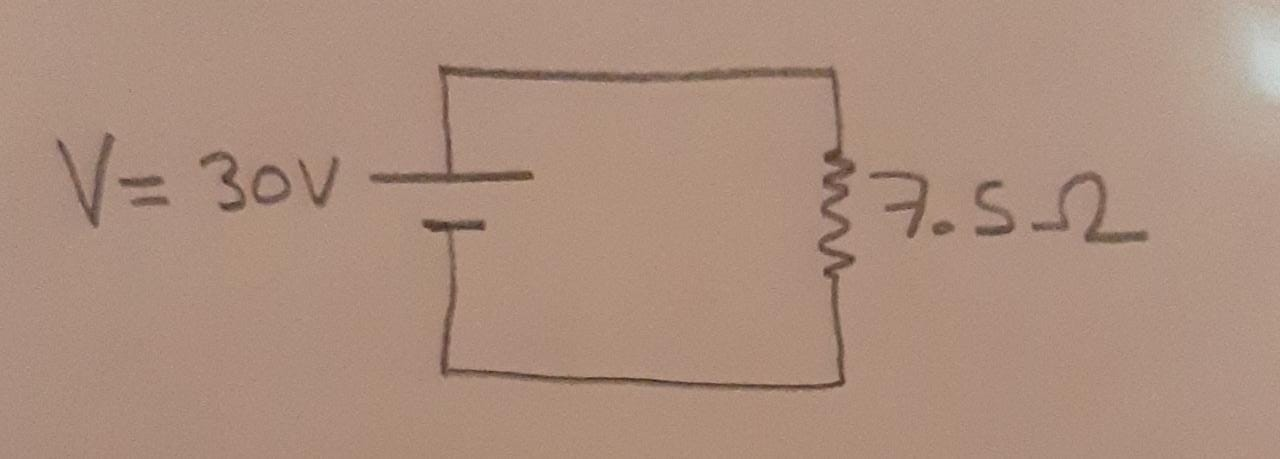 V= 30V
7.5Ω